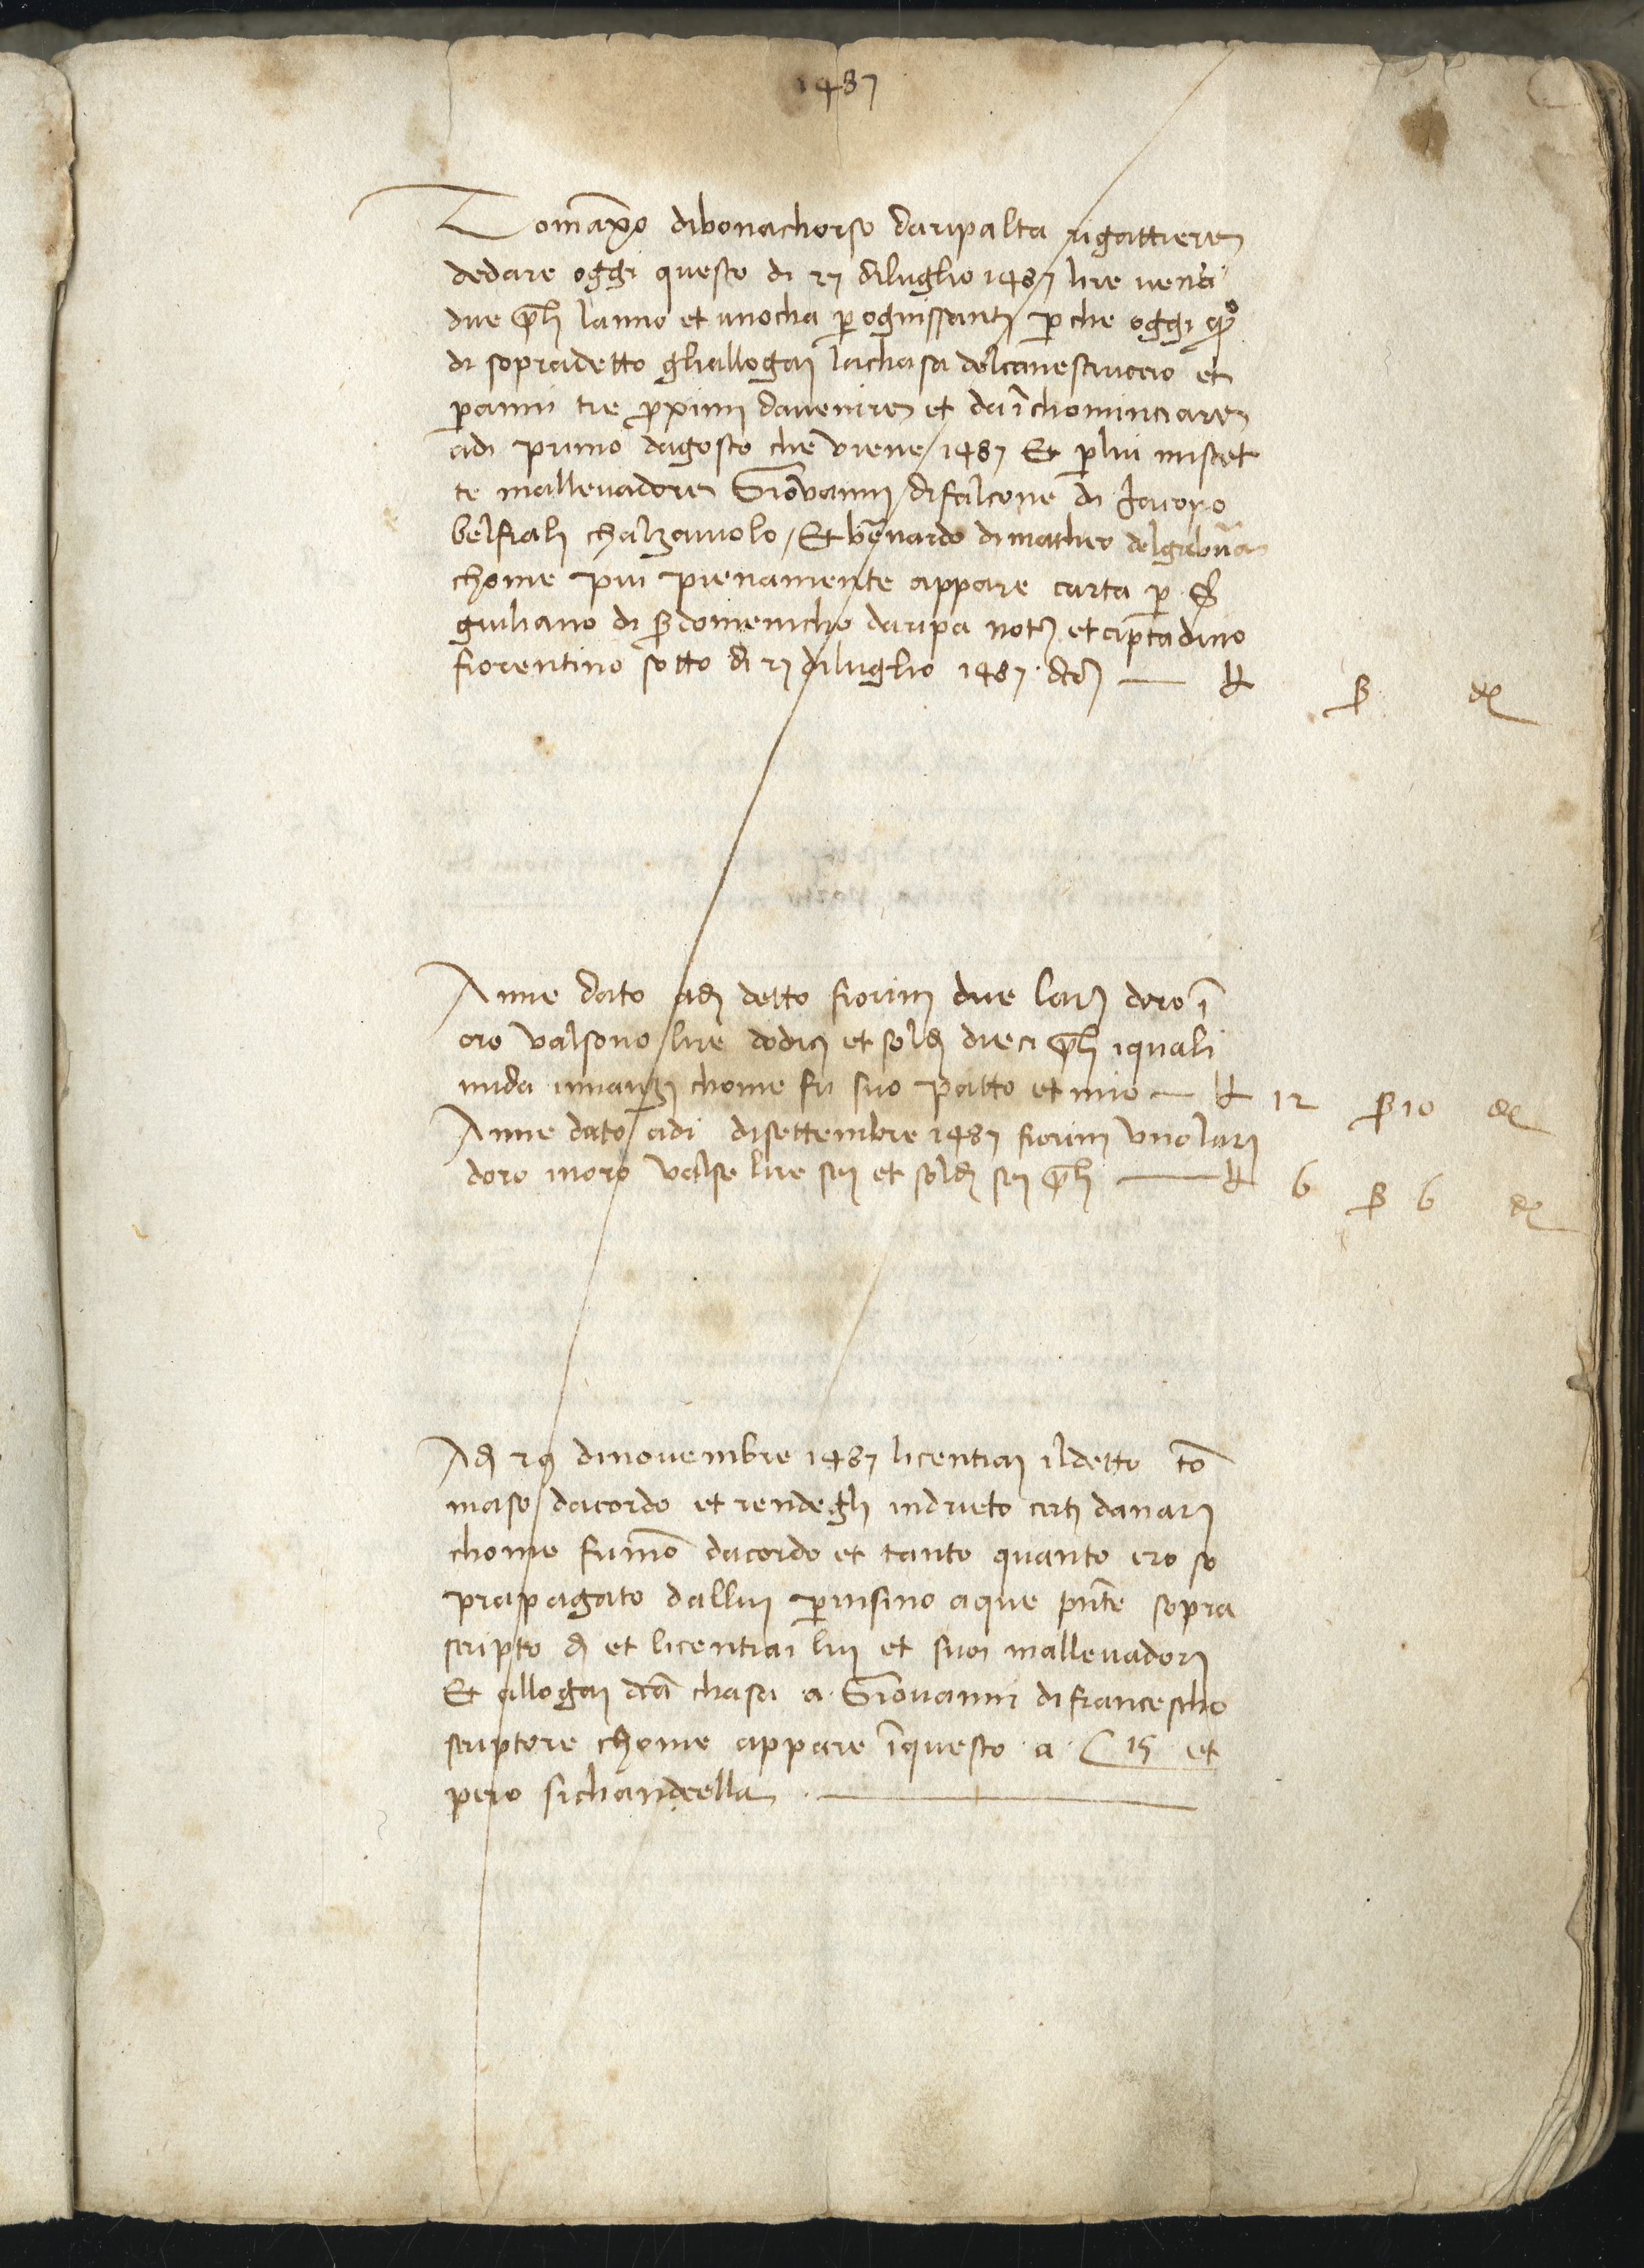 1487
Tomaxo dibonachorso daripalta rigattiere
dedare oggi questo di 27 diluglio 1487 lire venti
due p̄li lanno et unocha p ognissanti p che oggi q̄o
di sopradetto gliallogai lachasa delcanestruccio et
p anni tre p̄ximi davenire et da īchominciare
adi primo dagosto che viene 1487 Et p lui mistet
te mallevadore Giovanni difalcone di Jacopo
belfiali chalzaiuolo / Et b̄nardo dimatheo
chome piu pienamente appare carta p S̄
giuliano di S̄domenicho daripa not et ciptadino
fiorentino sotto di 27 diluglio 1487 dc̄ — L S d
Anne dato adi detto fiorini due larj doro ī
oro valsono lire dodici et soldi dieci p̄li iquali
mida innanzi chome fu suo patto et mio — L 12 S 10 d
Anne dato adi disettembre 1487 fiorini uno larj
doro inoro valse lire sei et soldi sei p̄li — L 6 S 6 d
Adi 29 dinovembre 1487 licentiai ildetto to
maso dacordo et rendegli indrieto certi danari
chome fumo dacordo et tanto quanto ero so
prapagato dallui p insino aque p̄nte sopra
scripto di et licentiai lui et suoi mallevadori
Et allogai dc̄a chasa a Giovanni difrancescho
scriptore chome appare īquesto a C 15 et
pero sichancella —